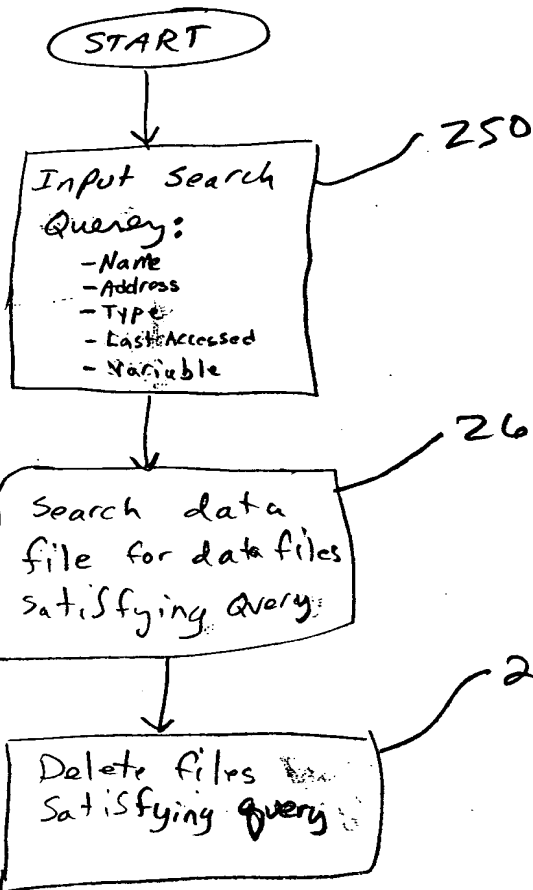 START
250
Input Search
Querey:
-Name
-Address
-Type
- Last Accessed
- Variable
26
Search data
file for data files
satisfying Query
2
Delete files
Satisfying query